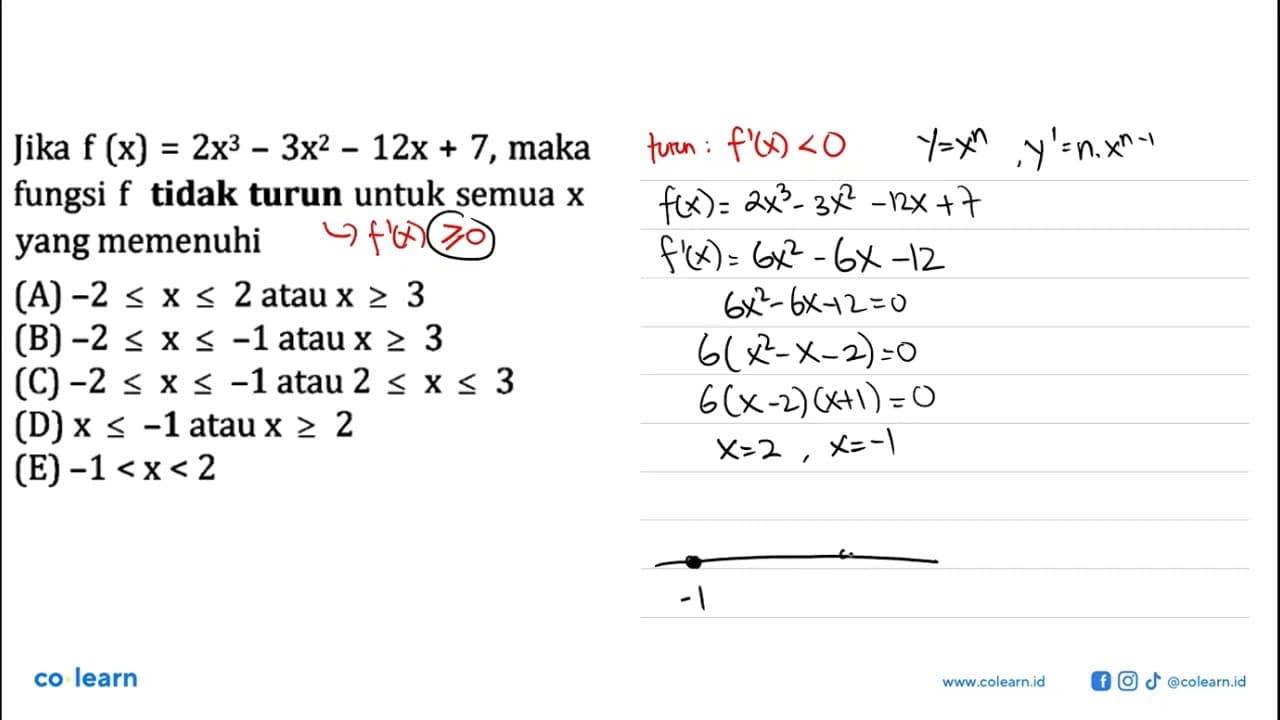 Jika f (x) = 2x³ – 3x² – 12x + 7, maka
fungsi f tidak turun untuk semua x
yang memenuhi
↳ f'(x) ≥0
(A) –2 ≤ x ≤ 2 atau x ≥ 3
(B) –2 ≤ x ≤ –1 atau x ≥ 3
(C) –2 ≤ x ≤ –1 atau 2 ≤ x ≤ 3
(D) x ≤ –1 atau x ≥ 2
(E) –1 < x < 2
turun : f'(x) < 0
y=xⁿ , y'=n.xⁿ⁻¹
f(x)= 2x³- 3x² -12x+7
f'(x)= 6x² - 6x -12
6x²-6x-12=0
6(x²-x-2)=0
6(x-2)(x+1)=0
x=2 , x=-1
-1
co learn
www.colearn.id
@colearn.id